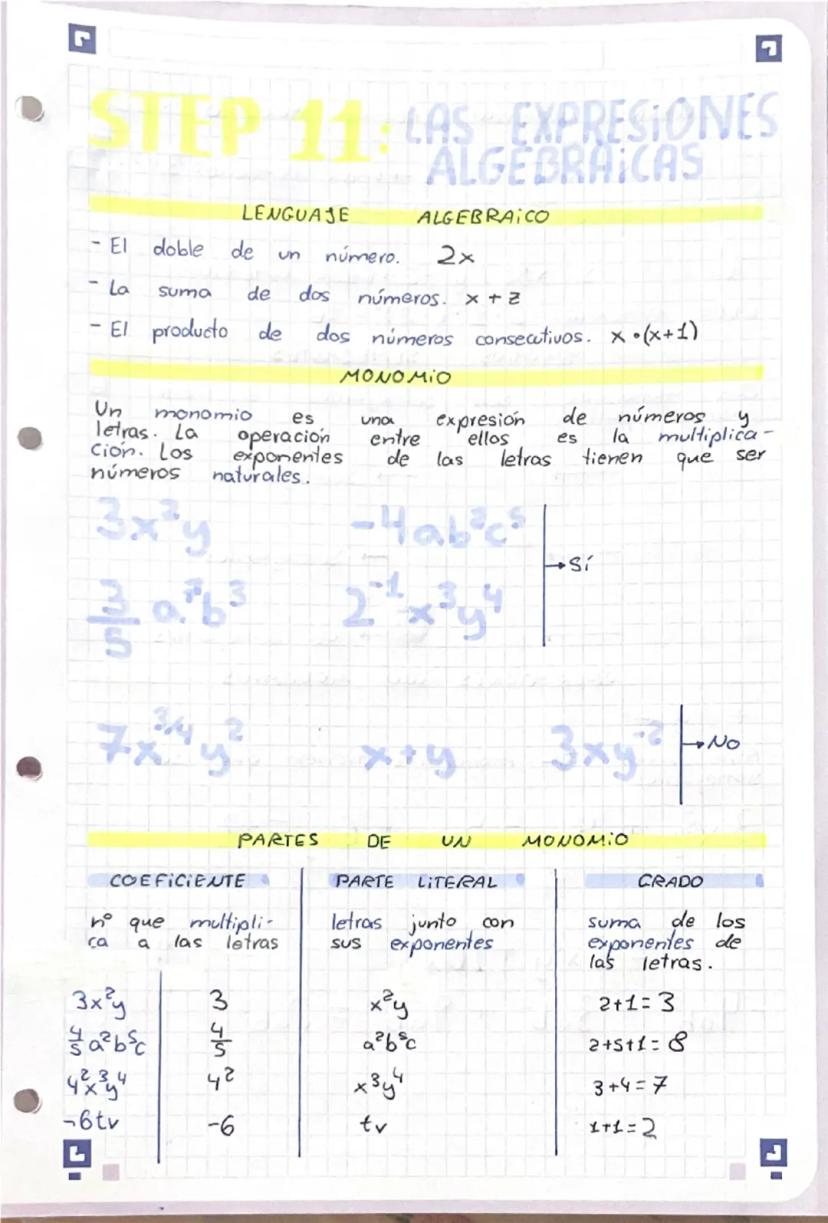 STEP 11: LAS EXPRESIONES
ALGEBRAICAS
LENGUAJE ALGEBRAICO
- El doble de un número. 2x
- La suma de dos números. x + z
- El producto de dos números consecutivos. x • (x+1)
MONOMIO
Un monomio es una expresión de números y
letras. La operación entre ellos es la multiplica-
ción. Los exponentes de las letras tienen que ser
números naturales.
3x²y -4ab²c⁵
→ Sí
3/5 a⁷b³ 2⁻¹x³y⁴
7x^3/4 y² x+y 3xy⁻² → No
PARTES DE UN MONOMIO
COEFICIENTE PARTE LITERAL GRADO
nº que multipli- letras junto con suma de los
ca a las letras sus exponentes exponentes de
las letras.
3x²y 3 x²y 2+1=3
4/5 a²b⁵c 4/5 a²b⁵c 2+5+1=8
4²x³y⁴ 4² x³y⁴ 3+4=7
-6tv -6 tv 1+1=2